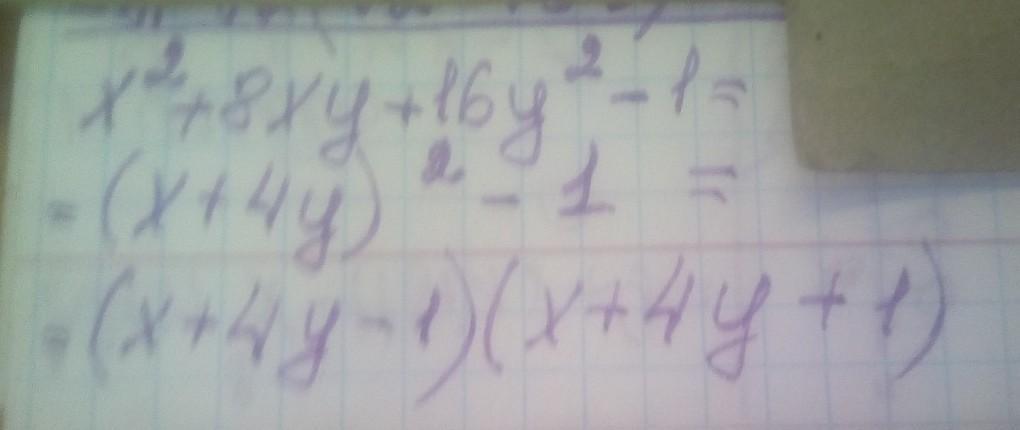 x² + 8xy + 16y² - 1 =
= (x + 4y)² - 1 =
= (x + 4y - 1)(x + 4y + 1)